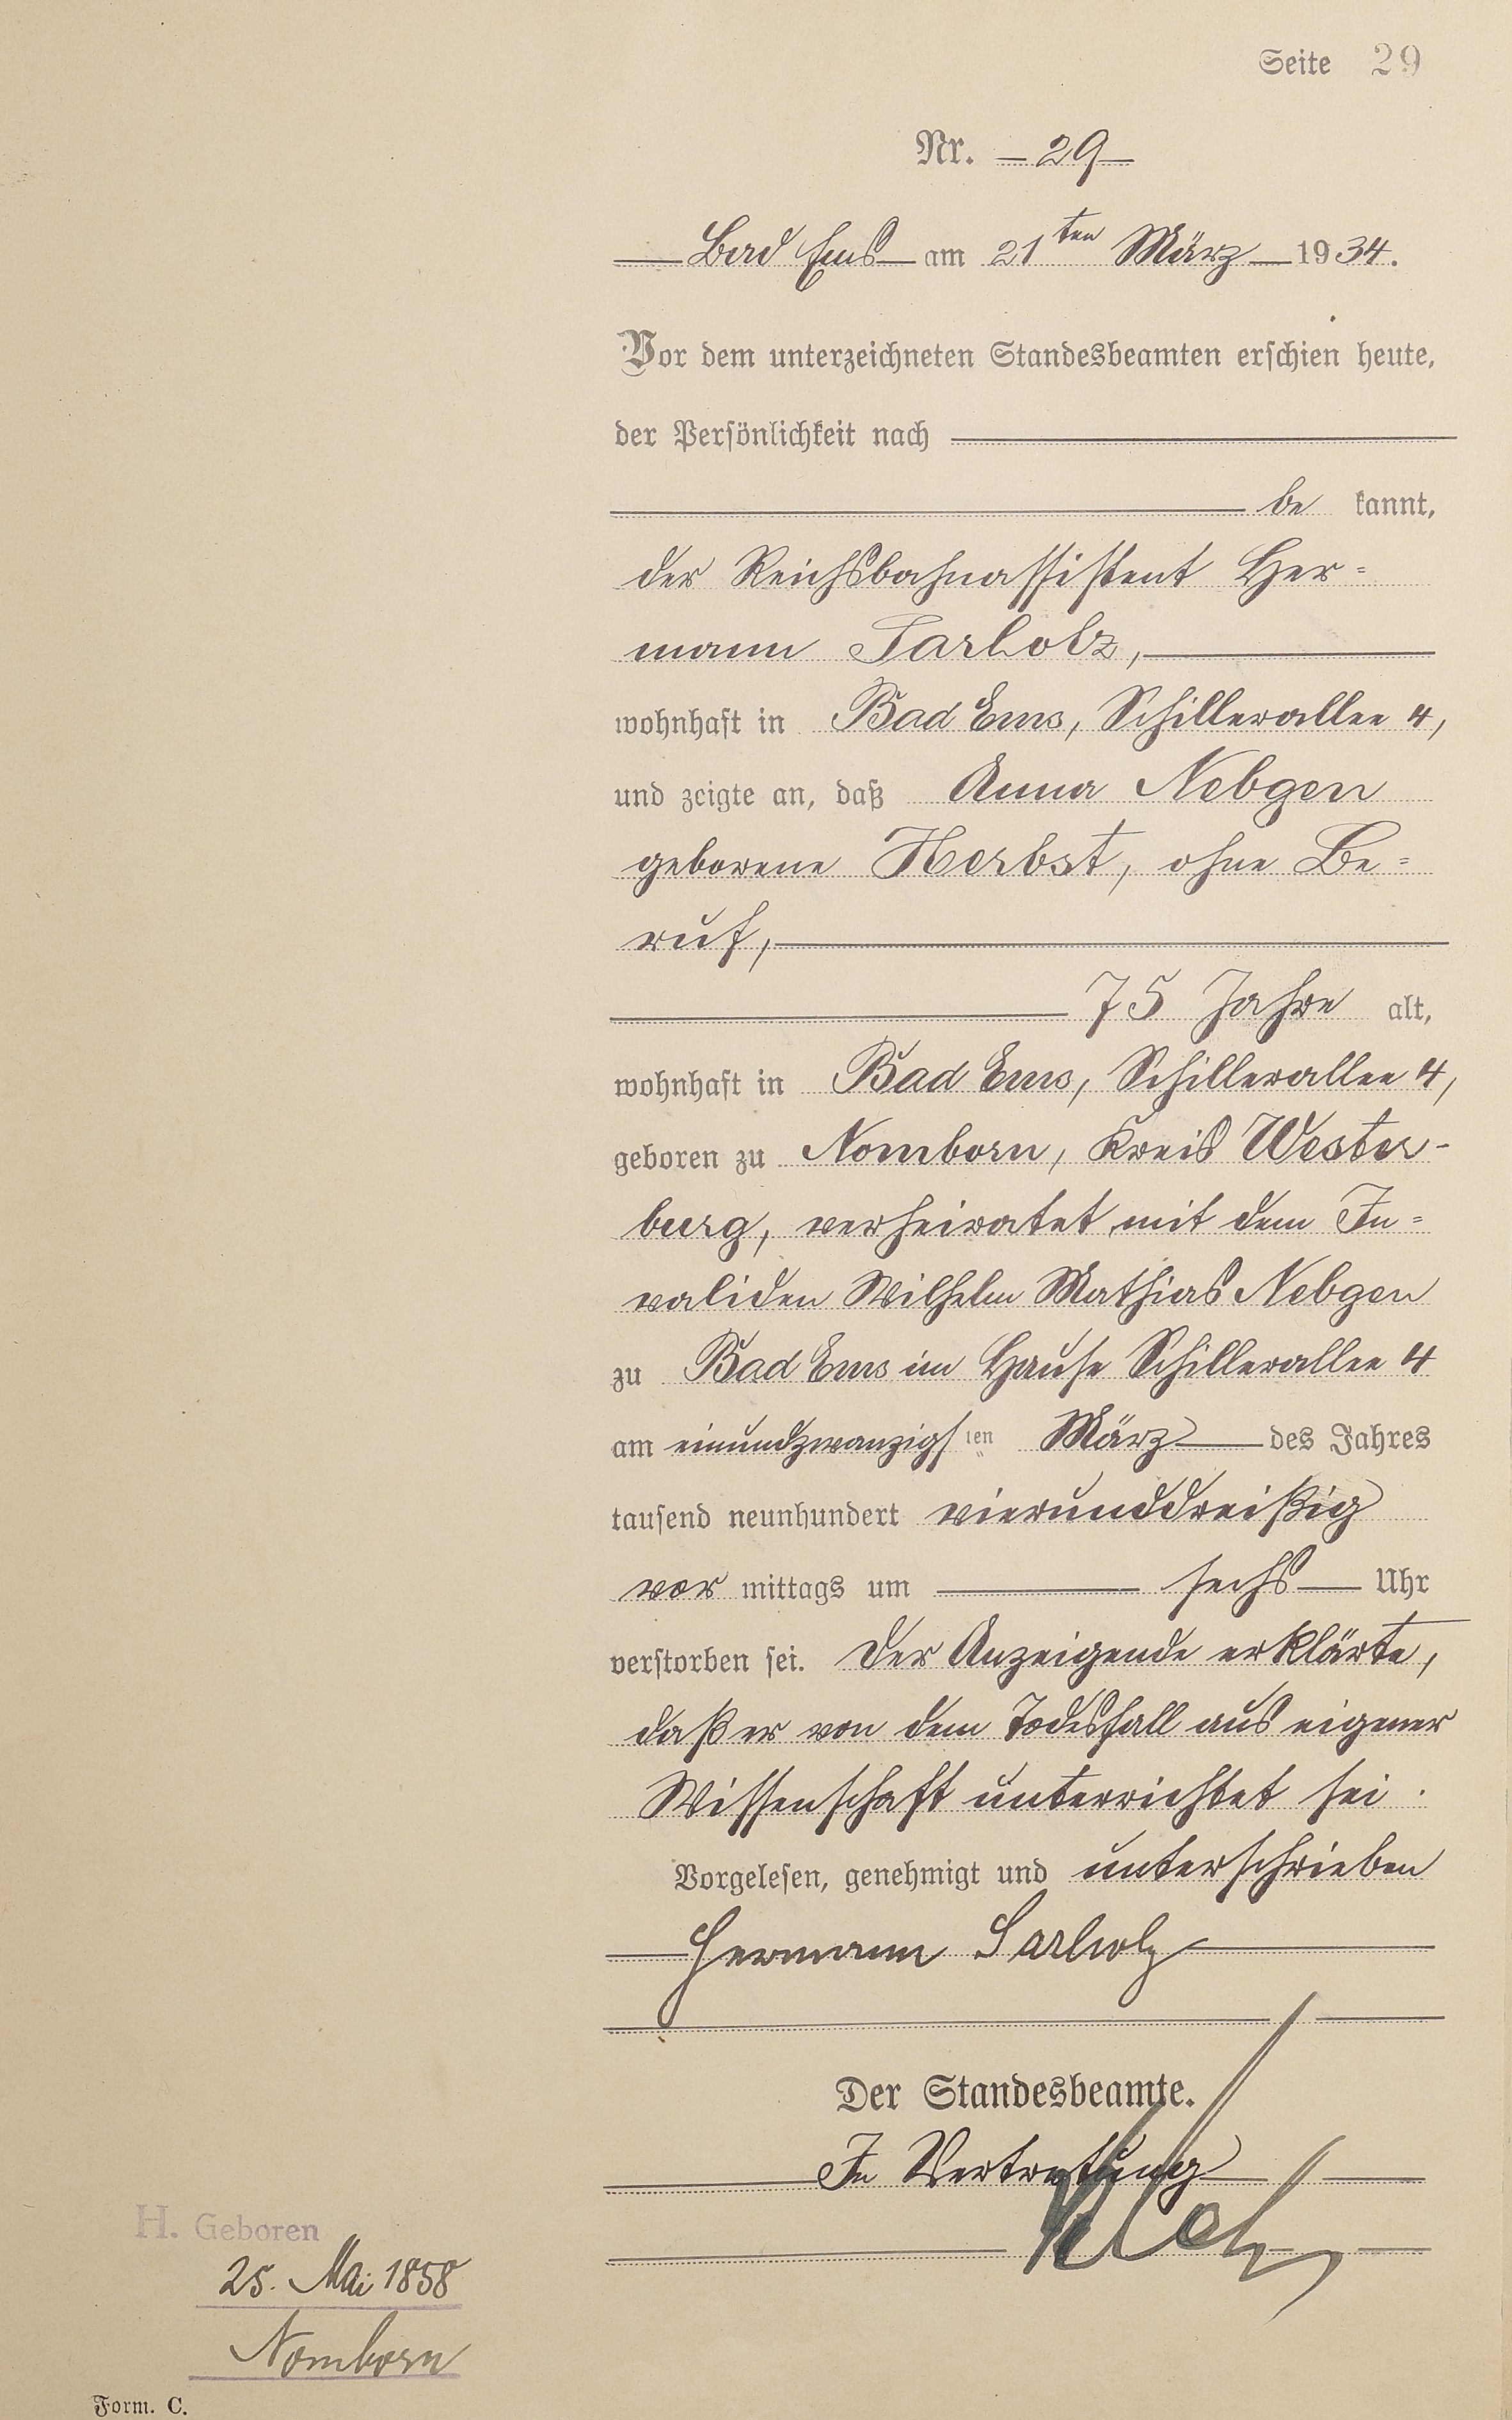 Seite 29
Nr. 29
Bad Ems am 21ten März 1934.
Vor dem unterzeichneten Standesbeamten erschien heute,
der Persönlichkeit nach
be kannt,
der Reichsbahnassistent Her=
mann Sarholz,
wohnhaft in Bad Ems, Schillerallee 4,
und zeigte an, daß Anna Nebgen
geborene Herbst, ohne Be=
ruf,
75 Jahre alt,
wohnhaft in Bad Ems, Schillerallee 4,
geboren zu Nomborn, Kreis Wester-
burg, verheiratet mit dem In=
validen Wilhelm Mathias Nebgen
zu Bad Ems im Hause Schillerallee 4
am einundzwanzigsten März des Jahres
tausend neunhundert vierunddreißig
vor mittags um sechs Uhr
verstorben sei. Der Anzeigende erklärte,
daß er von dem Todesfall aus eigener
Wissenschaft unterrichtet sei.
Vorgelesen, genehmigt und unterschrieben
Hermann Sarholz
Der Standesbeamte.
In Vertretung
H. Geboren
25. Mai 1858
Nomborn
Form. C.